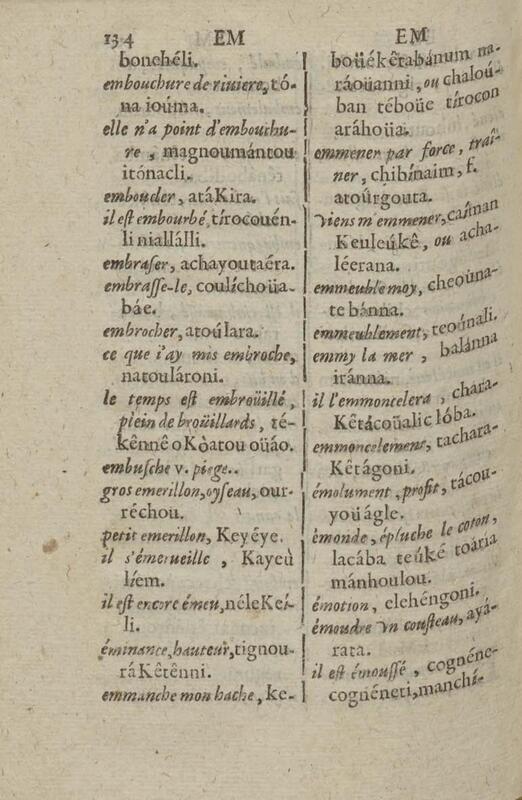 134 EM
bonchéli.
embouchure de riuiere, tó-
na ioúma.
elle n'a point d'embouchu-
re, magnoumántou
itónacli.
embouder, atáKira.
il est embourbé, tírocouén-
li niallálli.
embraser, achayoutaéra.
embrasse-le, coulíchoüa-
báe.
embrocher, atoúlara.
ce que i'ay mis embroche,
natoulároni.
le temps est embroüillé,
plein de broüillards, té-
kênnê o Kòatou oüáo.
embusche v. piege.
gros emerillon, oyseau, our-
réchou.
petit emerillon, Keyéye.
il s'émerueille, Kayeù
líem.
il est encore émeu, néleKeí-
li.
éminance, hauteur, tignou-
ráKêtênni.
emmanche mon hache, ke-
EM
boüékêrabánum na-
ráoüanni, ou chaloú-
ban téboüe tírocon
aráhoüa.
emmener par force, traî-
ner, chibínaim, f.
atoúrgouta.
viens m'emmener, caíman
Keuleúkê, ou acha-
léerana.
emmeuble moy, cheoúna-
te bánna.
emmeublement, teoúnali.
emmy la mer, balánna
iránna.
il l'emmoncelera, chara-
Kêtácoüalic lóba.
emmoncelement, tachara-
Kêtágoni.
émolument, profit, tácou-
yoüágle.
émonde, épluche le coton,
lacába teúké toária
mánhoulou.
émotion, elehéngoni.
émoudre vn cousteau, ayá-
rata.
il est émoussé, cognéne-
cognéneti, manchí-